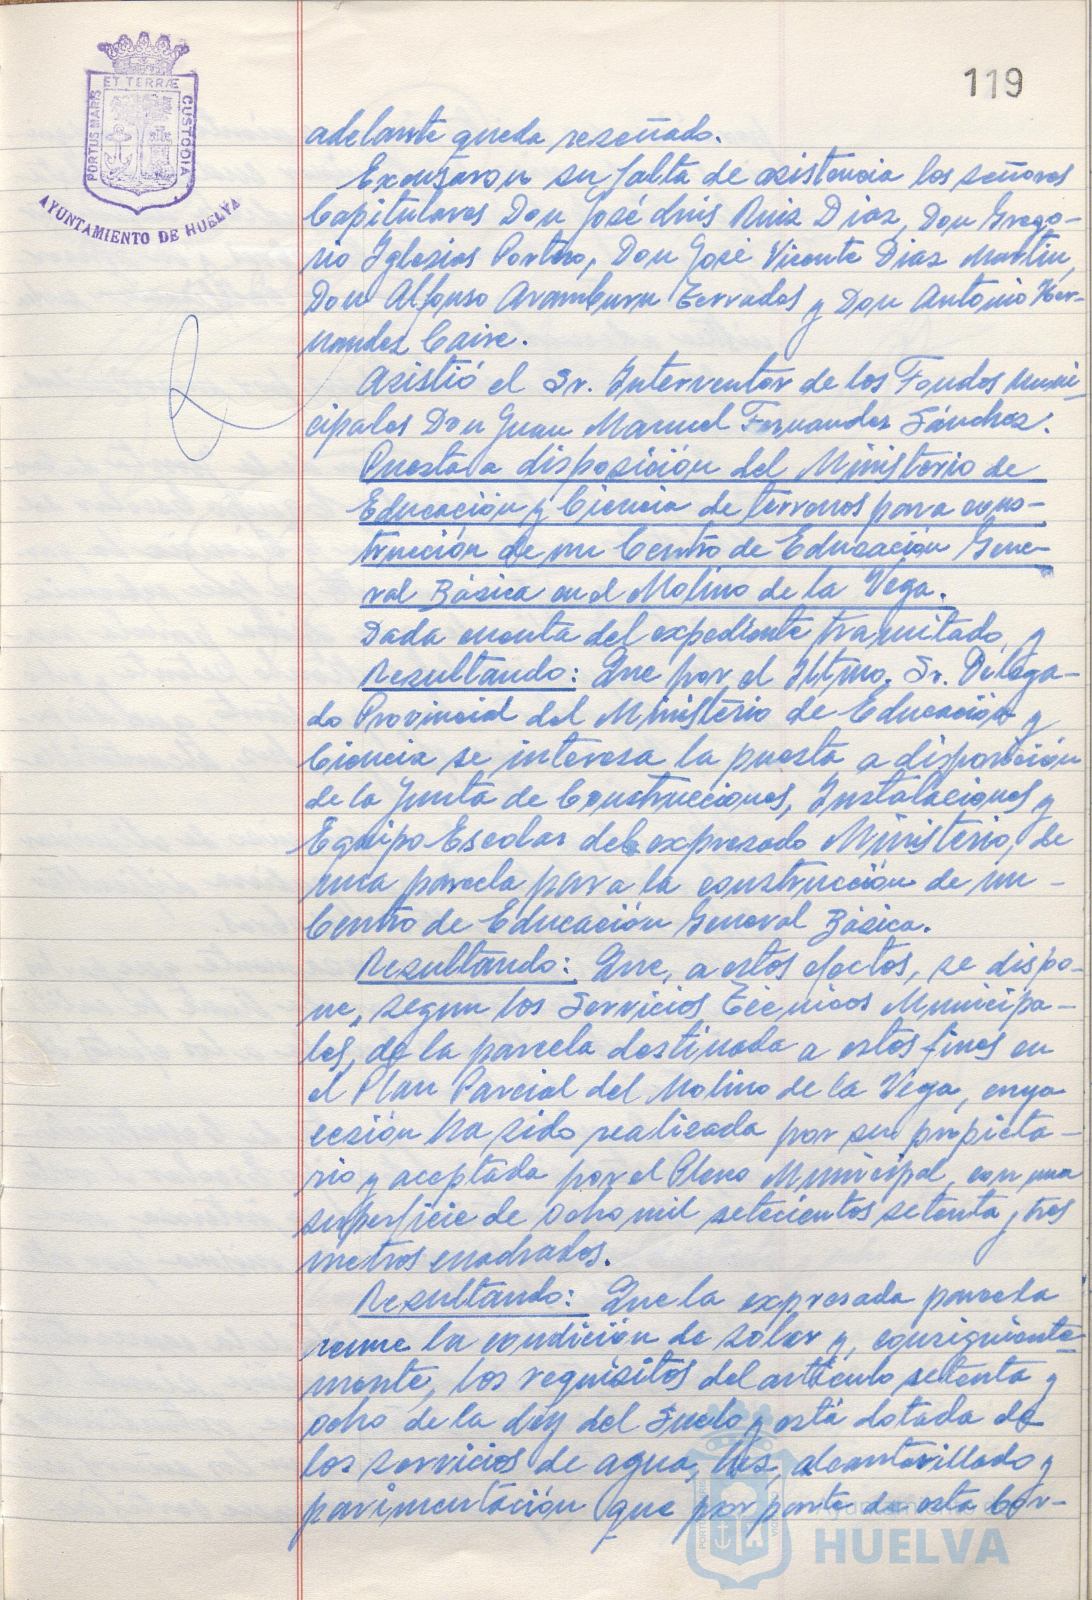 119
ET TERRÆ
PORTUS MARIS
CUSTODIA
AYUNTAMIENTO DE HUELVA
adelante queda reseñado.
Excusaron su falta de asistencia los señores
Capitulares Don José Luis Ruiz Diaz, Don Grego-
rio Iglesias Portero, Don José Vicente Diaz Martin,
Don Alfonso Aramburu Terrados y Don Antonio Her-
nandez Caire.
Asistió el Sr. Interventor de los Fondos Muni-
cipales Don Juan Manuel Fernandez Sánchez.
Puesta a disposición del Ministerio de
Educación y Ciencia de terrenos para cons-
trucción de un Centro de Educación Gene-
ral Básica en el Molino de la Vega.
Dada cuenta del expediente tramitado y
Resultando: Que por el Iltmo. Sr. Delega-
do Provincial del Ministerio de Educación y
Ciencia se interesa la puesta a disposición
de la Junta de Construcciones, Instalaciones y
Equipo Escolar del expresado Ministerio, de
una parcela para la construcción de un
Centro de Educación General Básica.
Resultando: Que, a estos efectos, se dispo-
ne, segun los Servicios Técnicos Municipa-
les, de la parcela destinada a estos fines en
el Plan Parcial del Molino de la Vega, cuya
cesión ha sido realizada por su propieta-
rio y aceptada por el Pleno Municipal, con una
superficie de ocho mil setecientos setenta y tres
metros cuadrados.
Resultando: Que la expresada parcela
reune la condición de solar y, consiguiente-
mente, los requisitos del artículo setenta y
ocho de la Ley del Suelo y está dotada de
los servicios de agua, luz, alcantarillado y
pavimentación que por parte de esta Cor-
Ayuntamiento de
HUELVA